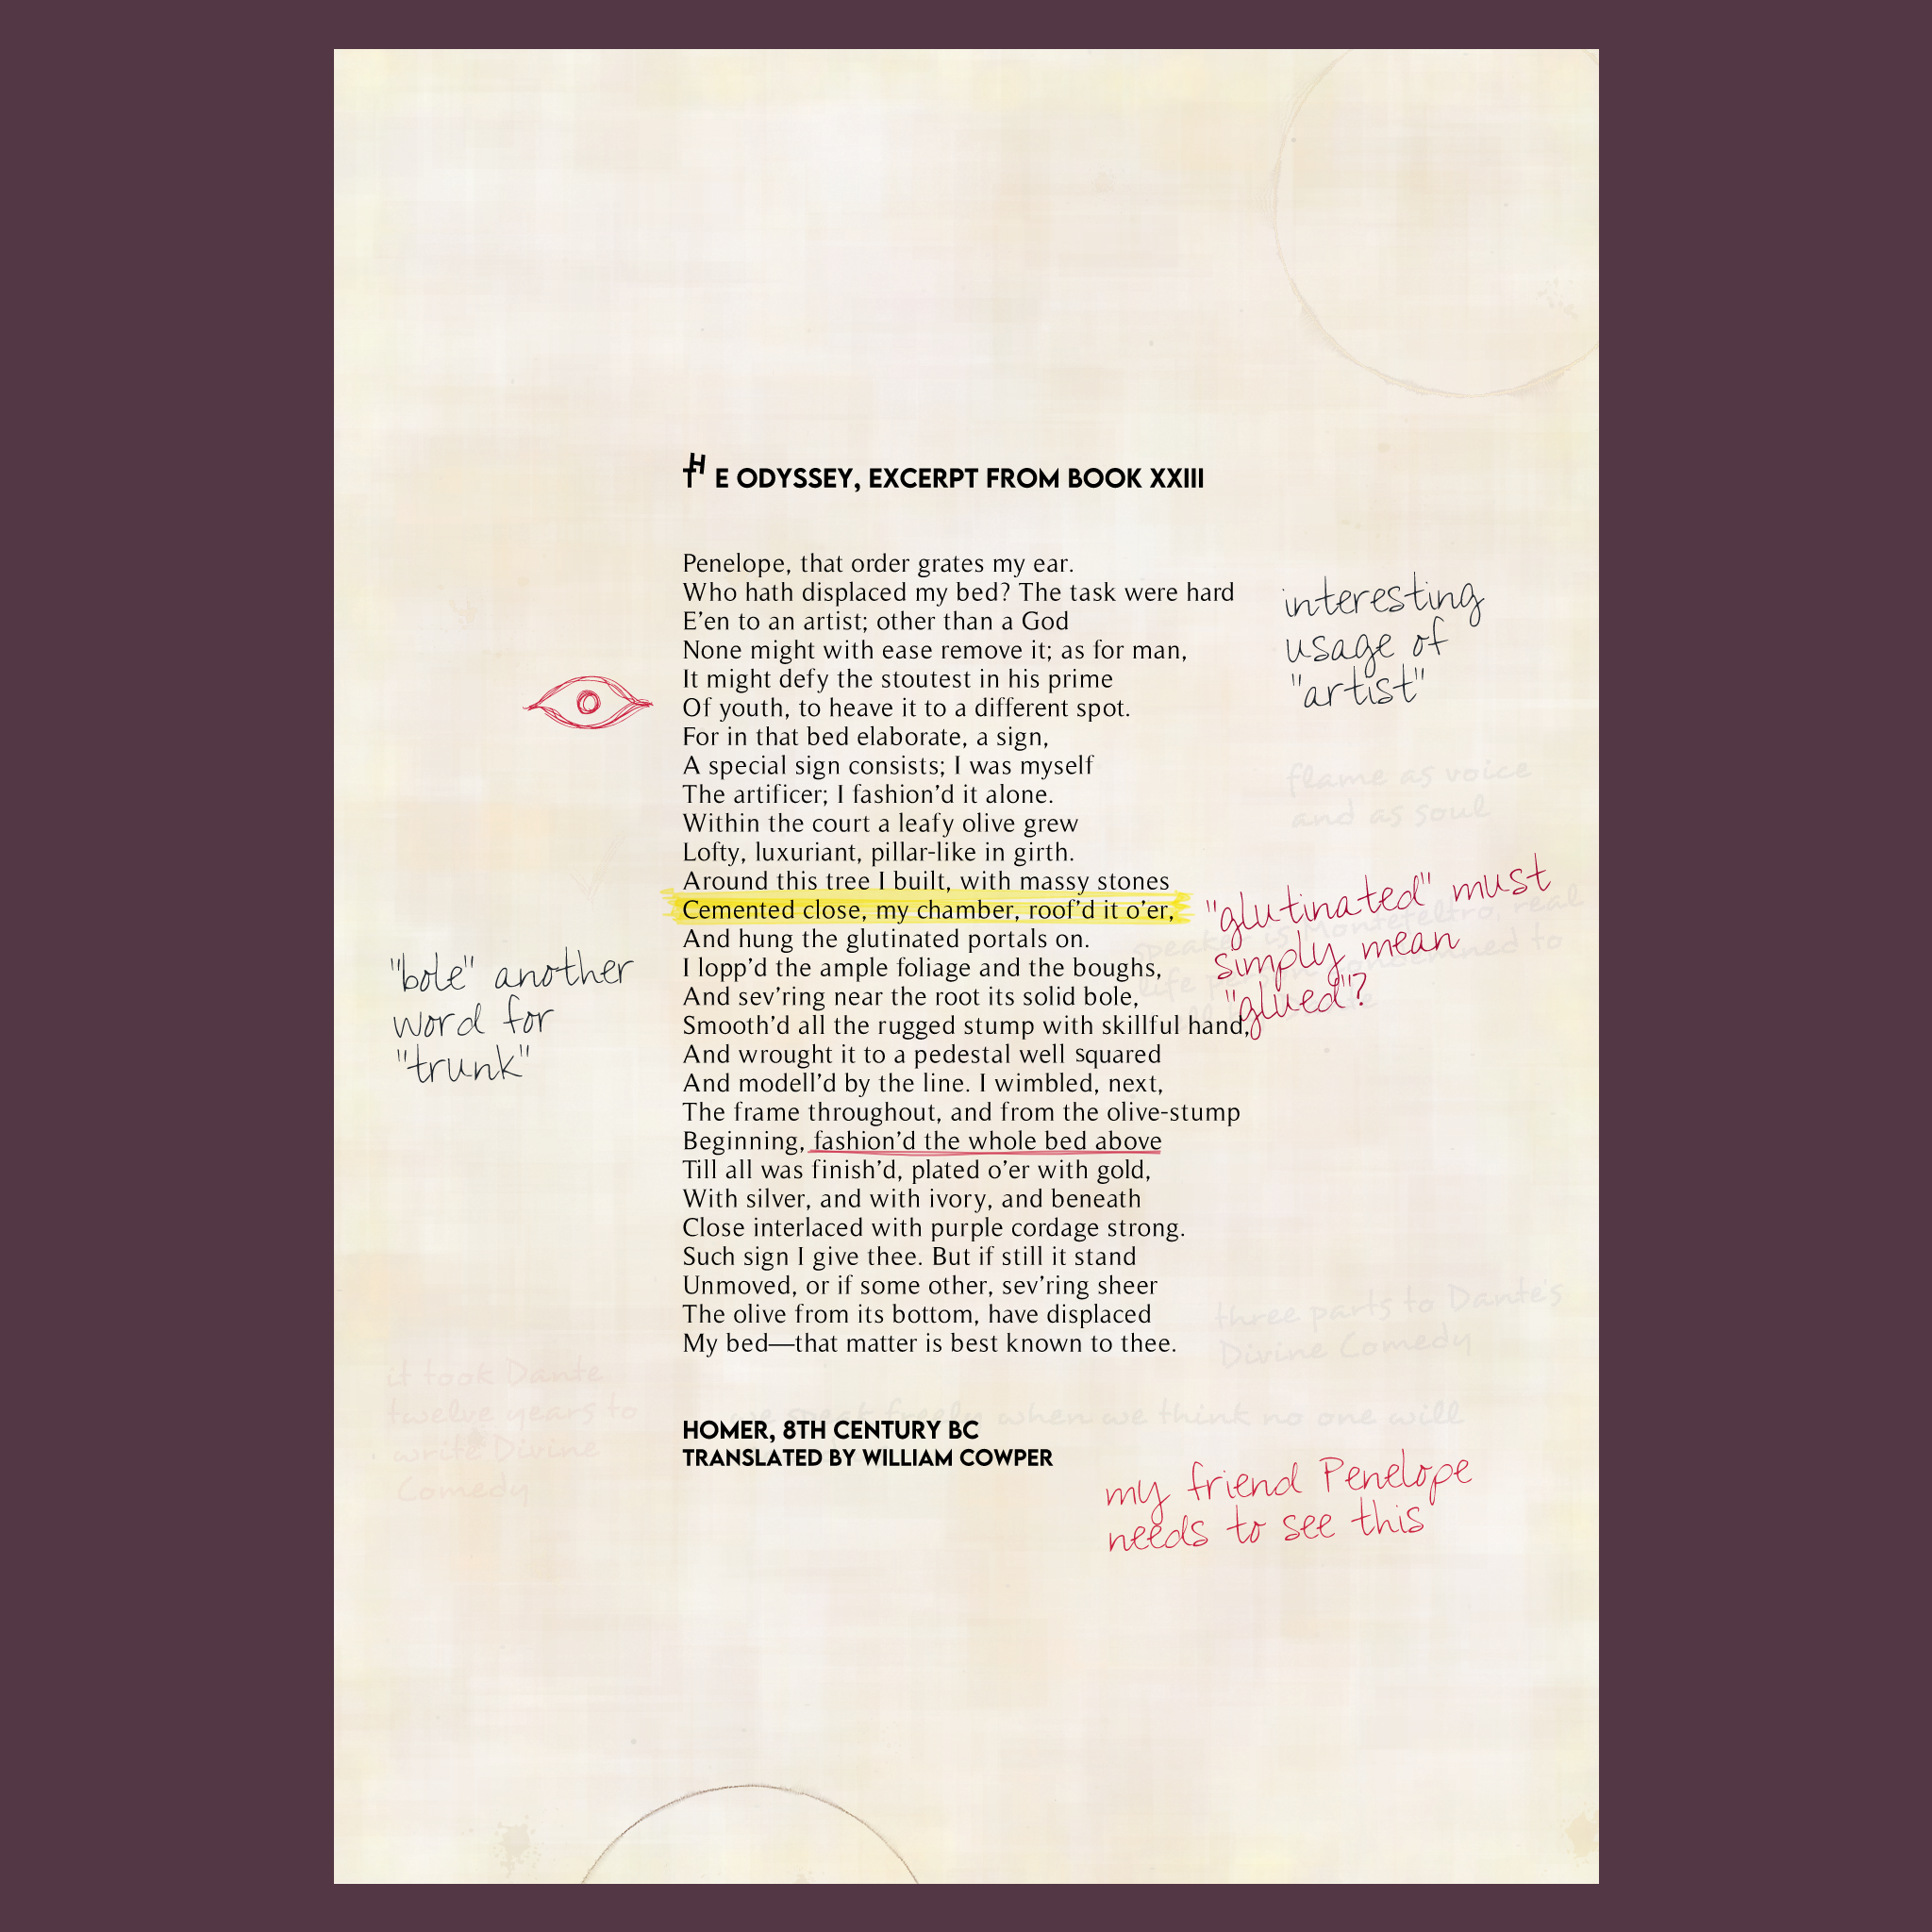 THE ODYSSEY, EXCERPT FROM BOOK XXIII
Penelope, that order grates my ear.
Who hath displaced my bed? The task were hard
E’en to an artist; other than a God
None might with ease remove it; as for man,
It might defy the stoutest in his prime
Of youth, to heave it to a different spot.
For in that bed elaborate, a sign,
A special sign consists; I was myself
The artificer; I fashion’d it alone.
Within the court a leafy olive grew
Lofty, luxuriant, pillar-like in girth.
Around this tree I built, with massy stones
Cemented close, my chamber, roof’d it o’er,
And hung the glutinated portals on.
I lopp’d the ample foliage and the boughs,
And sev’ring near the root its solid bole,
Smooth’d all the rugged stump with skillful hand,
And wrought it to a pedestal well squared
And modell’d by the line. I wimbled, next,
The frame throughout, and from the olive-stump
Beginning, fashion’d the whole bed above
Till all was finish’d, plated o’er with gold,
With silver, and with ivory, and beneath
Close interlaced with purple cordage strong.
Such sign I give thee. But if still it stand
Unmoved, or if some other, sev’ring sheer
The olive from its bottom, have displaced
My bed—that matter is best known to thee.
HOMER, 8TH CENTURY BC
TRANSLATED BY WILLIAM COWPER
interesting
usage of
"artist"
flame as voice
and as soul
"glutinated" must
simply mean
"glued"?
speaker is Montefeltro, real
life person condemned to
"bole" another
word for
"trunk"
three parts to Dante's
Divine Comedy
it took Dante
twelve years to
write Divine
Comedy
we speak freely when we think no one will
my friend Penelope
needs to see this